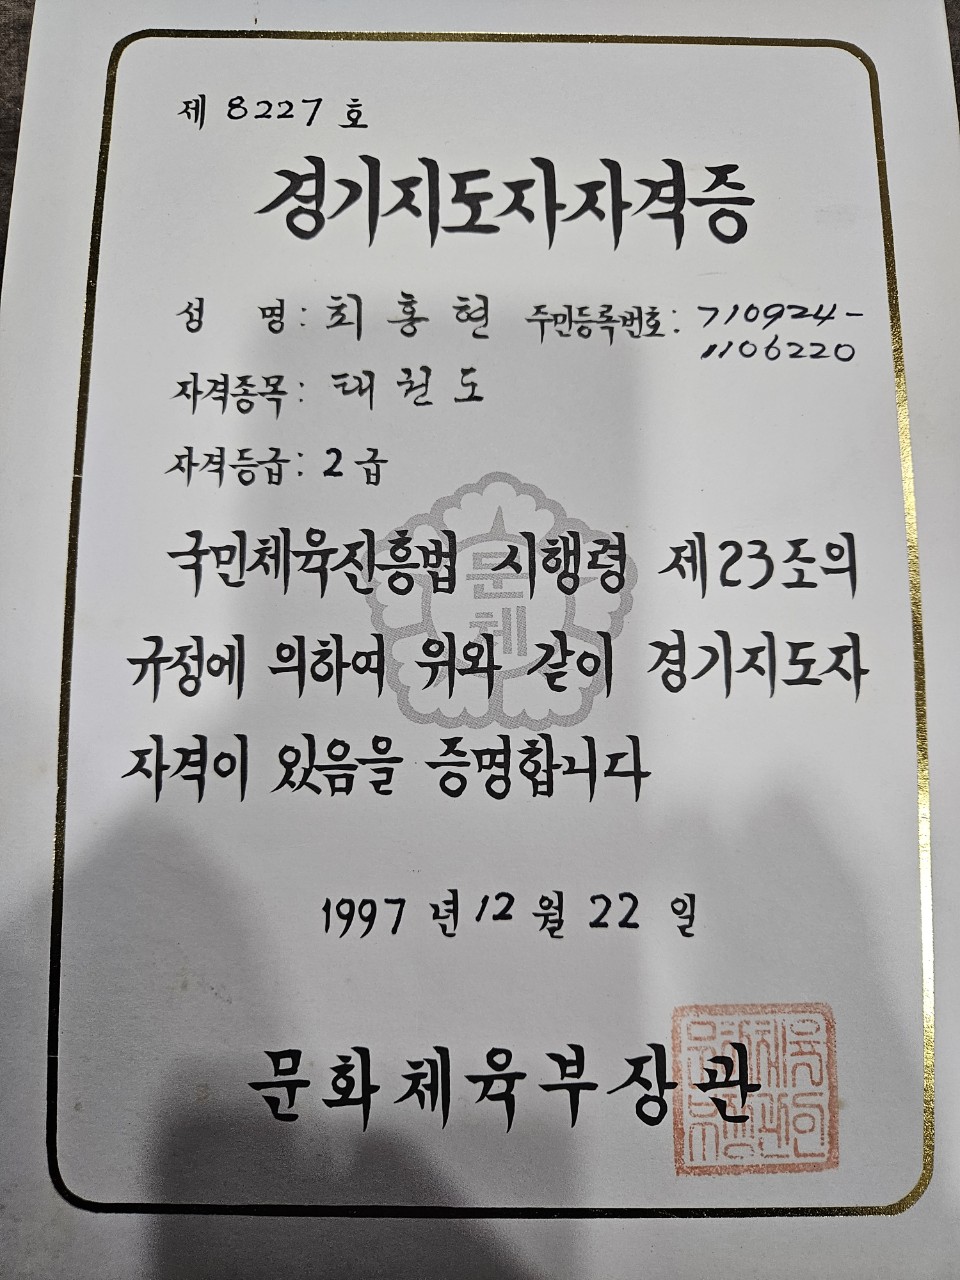 제 8227 호
경기지도자자격증
성 명: 최홍현 주민등록번호: 710924-
1106220
자격종목: 태권도
자격등급: 2급
국민체육진흥법 시행령 제23조의
규정에 의하여 위와 같이 경기지도자
자격이 있음을 증명합니다
문체
1997년 12월 22일
문화체육부장관